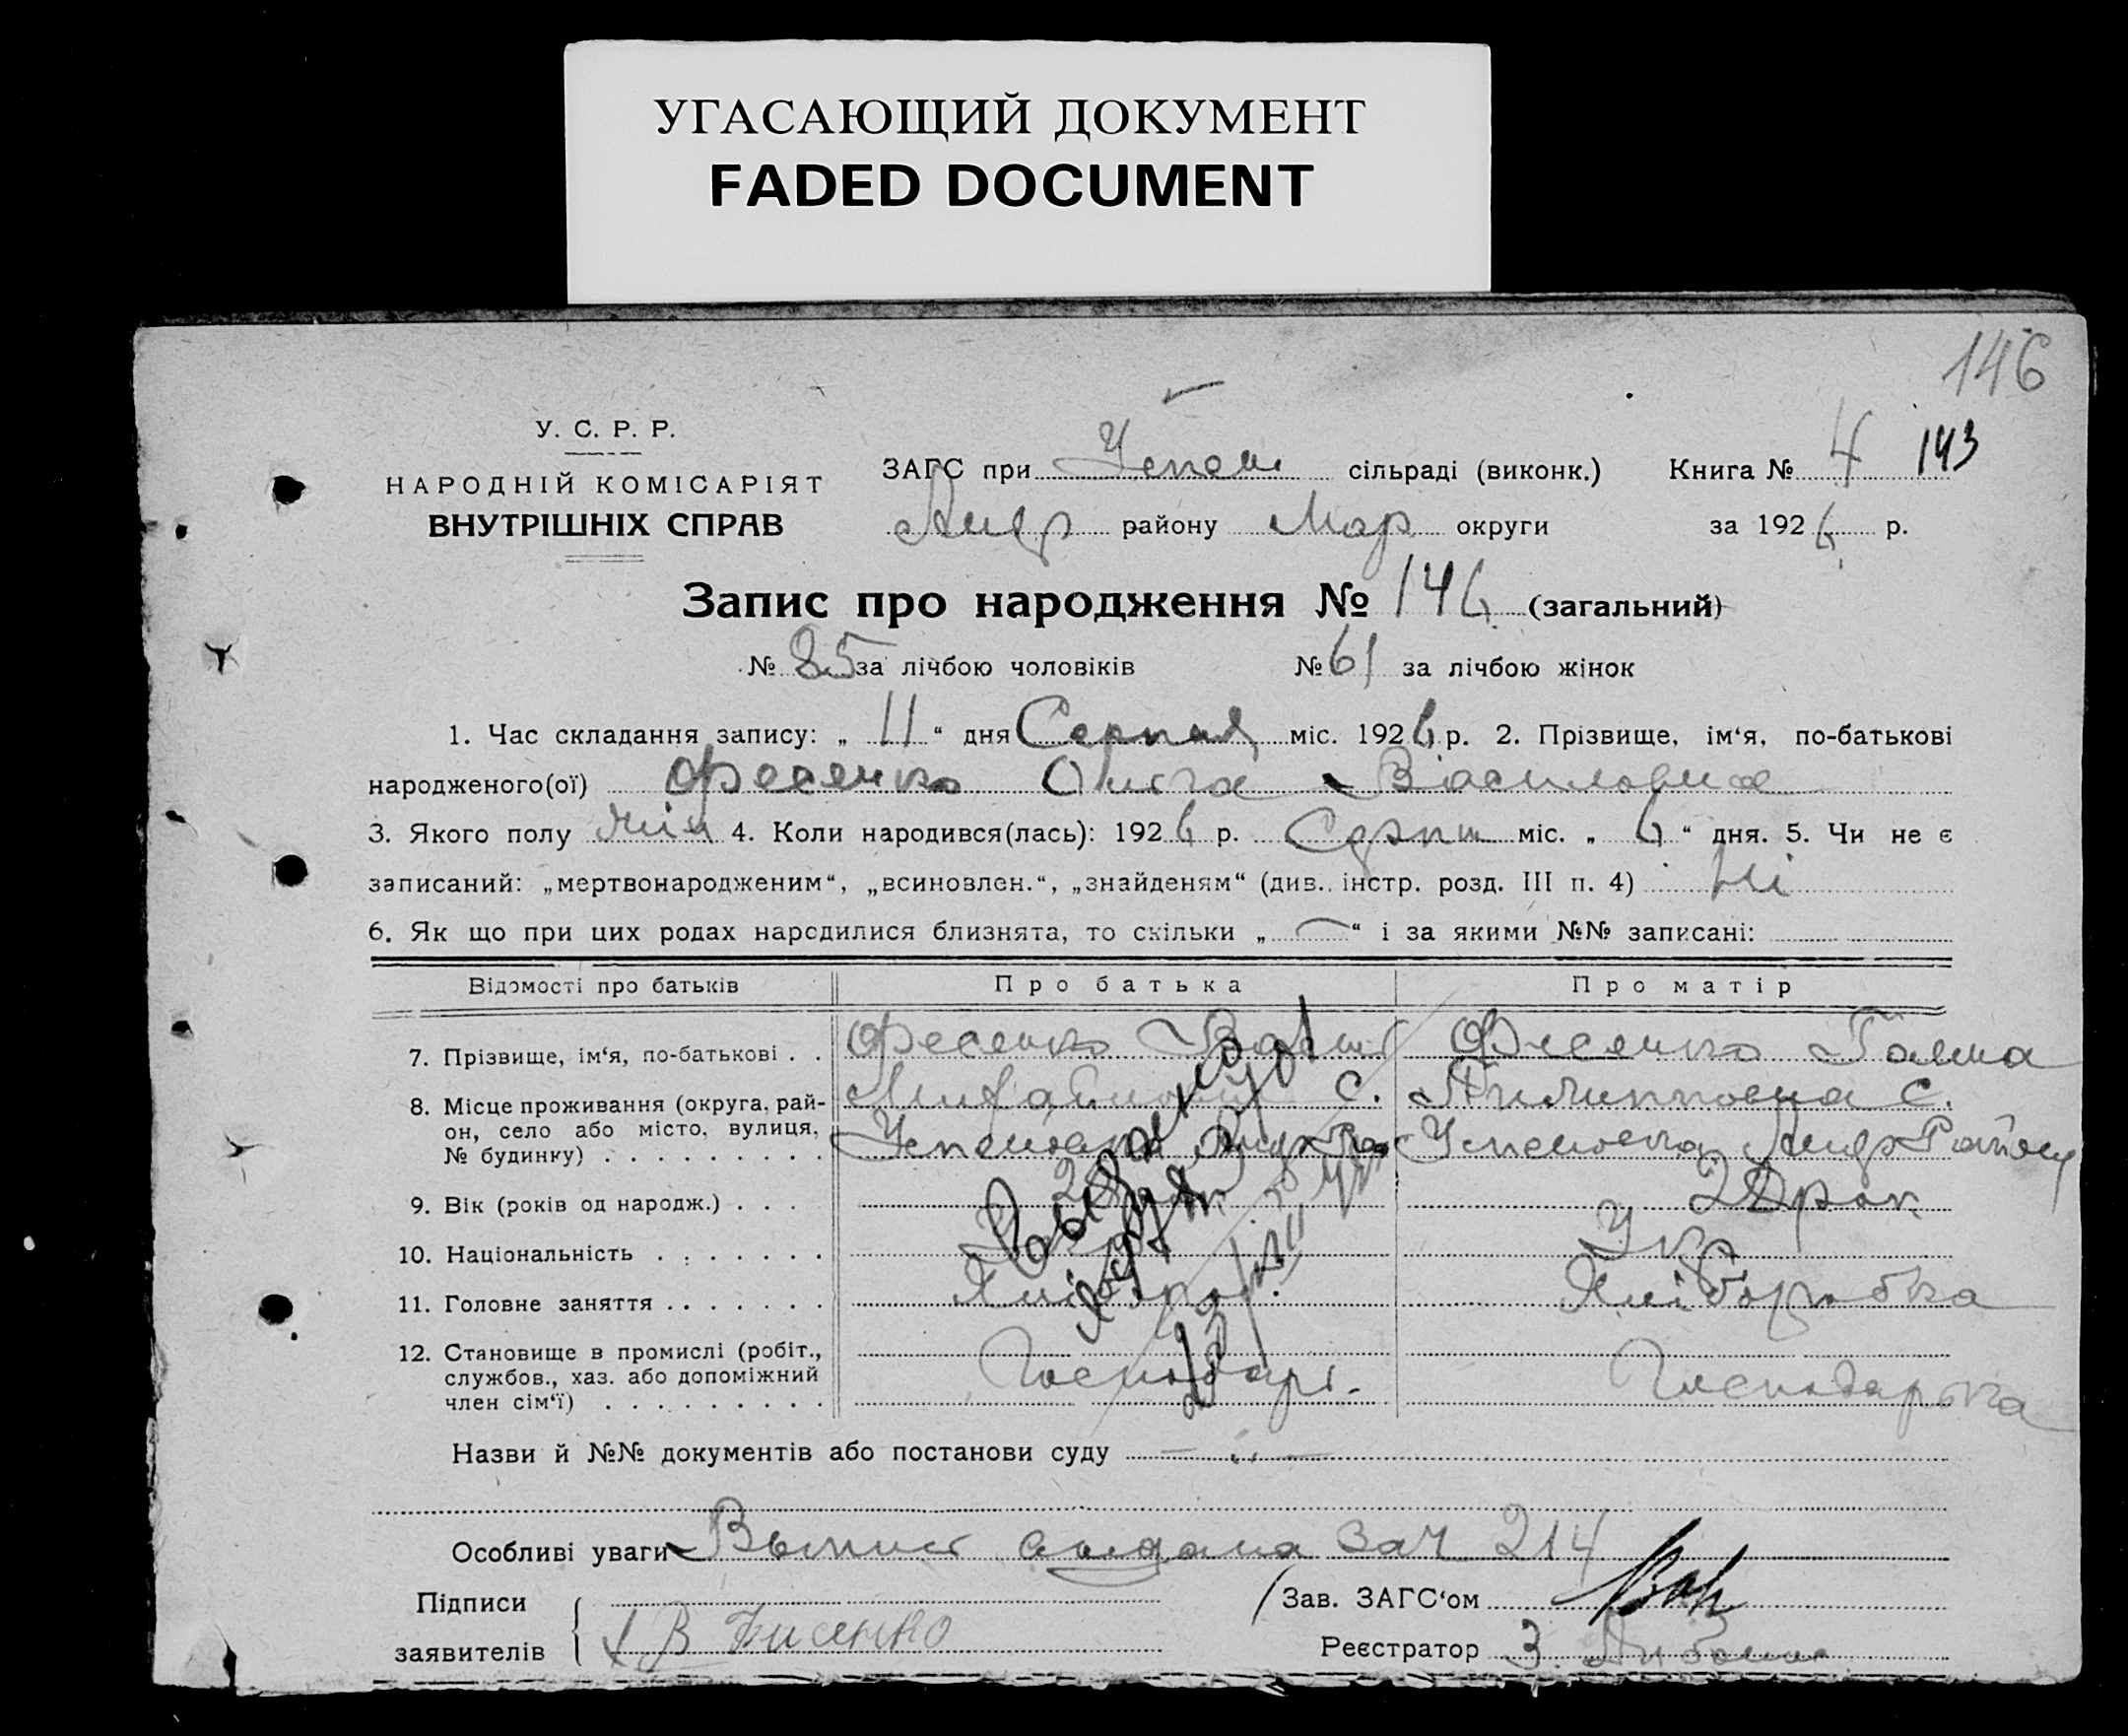 УГАСАЮЩИЙ ДОКУМЕНТ
FADED DOCUMENT
146
У. С. Р. Р.
НАРОДНІЙ КОМІСАРІЯТ
ВНУТРІШНІХ СПРАВ
ЗАГС при Успен сільраді (виконк.) Книга № 4 143
Андр району Мар округи за 1926 р.
Запис про народження № 146 (загальний)
№ 85 за лічбою чоловіків № 61 за лічбою жінок
1. Час складання запису: „ 11 “ дня Серпня міс. 1926 р. 2. Прізвище, ім‘я, по-батькові
народженого(ої) Фесенко Ольга Василовна
3. Якого полу жін 4. Коли народився(лась): 1926 р. Серпн міс. „ 6 “ дня. 5. Чи не є
записаний: „мертвонародженим“, „всиновлен.“, „знайденям“ (див. інстр. розд. III п. 4) Ні
6. Як що при цих родах народилися близнята, то скільки „ — “ і за якими №№ записані:
Відомості про батьків Про батька Про матір
7. Прізвище, ім‘я, по-батькові . . Фесенко Васил Фесенко Галина
8. Місце проживання (округа, рай- Михайлович С. Филипповна С.
он, село або місто, вулиця, Успеновка Андр Ра Успеновка Андр Району
№ будинку) . . . . . . . . .
9. Вік (років од народж.) . . . 28 28 рок.
10. Національність . . . . . . . Укр
11. Головне заняття . . . . . . . Хліборобка
12. Становище в промислі (робіт.,
службов., хаз. або допоміжний Господарь. Господарька
член сім‘ї) . . . . . . . . .
Назви й №№ документів або постанови суду — „ —
Особливі уваги Выпис выдана за № 214
Підписи Зав. ЗАГС‘ом
заявителів В Фисенко Реєстратор З.